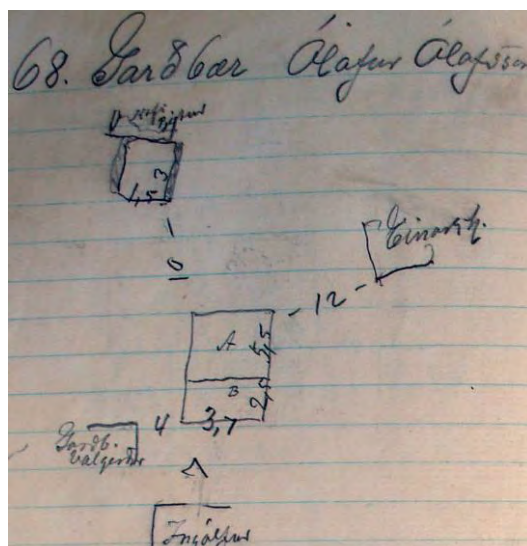 68. Garðbær Ólafur Ólafsson
3
1,5
10
Einarsh.
- 12 -
A
5,5
B
2,5
4
3,7
Garðb.
Valgerður
7
Ingólfur